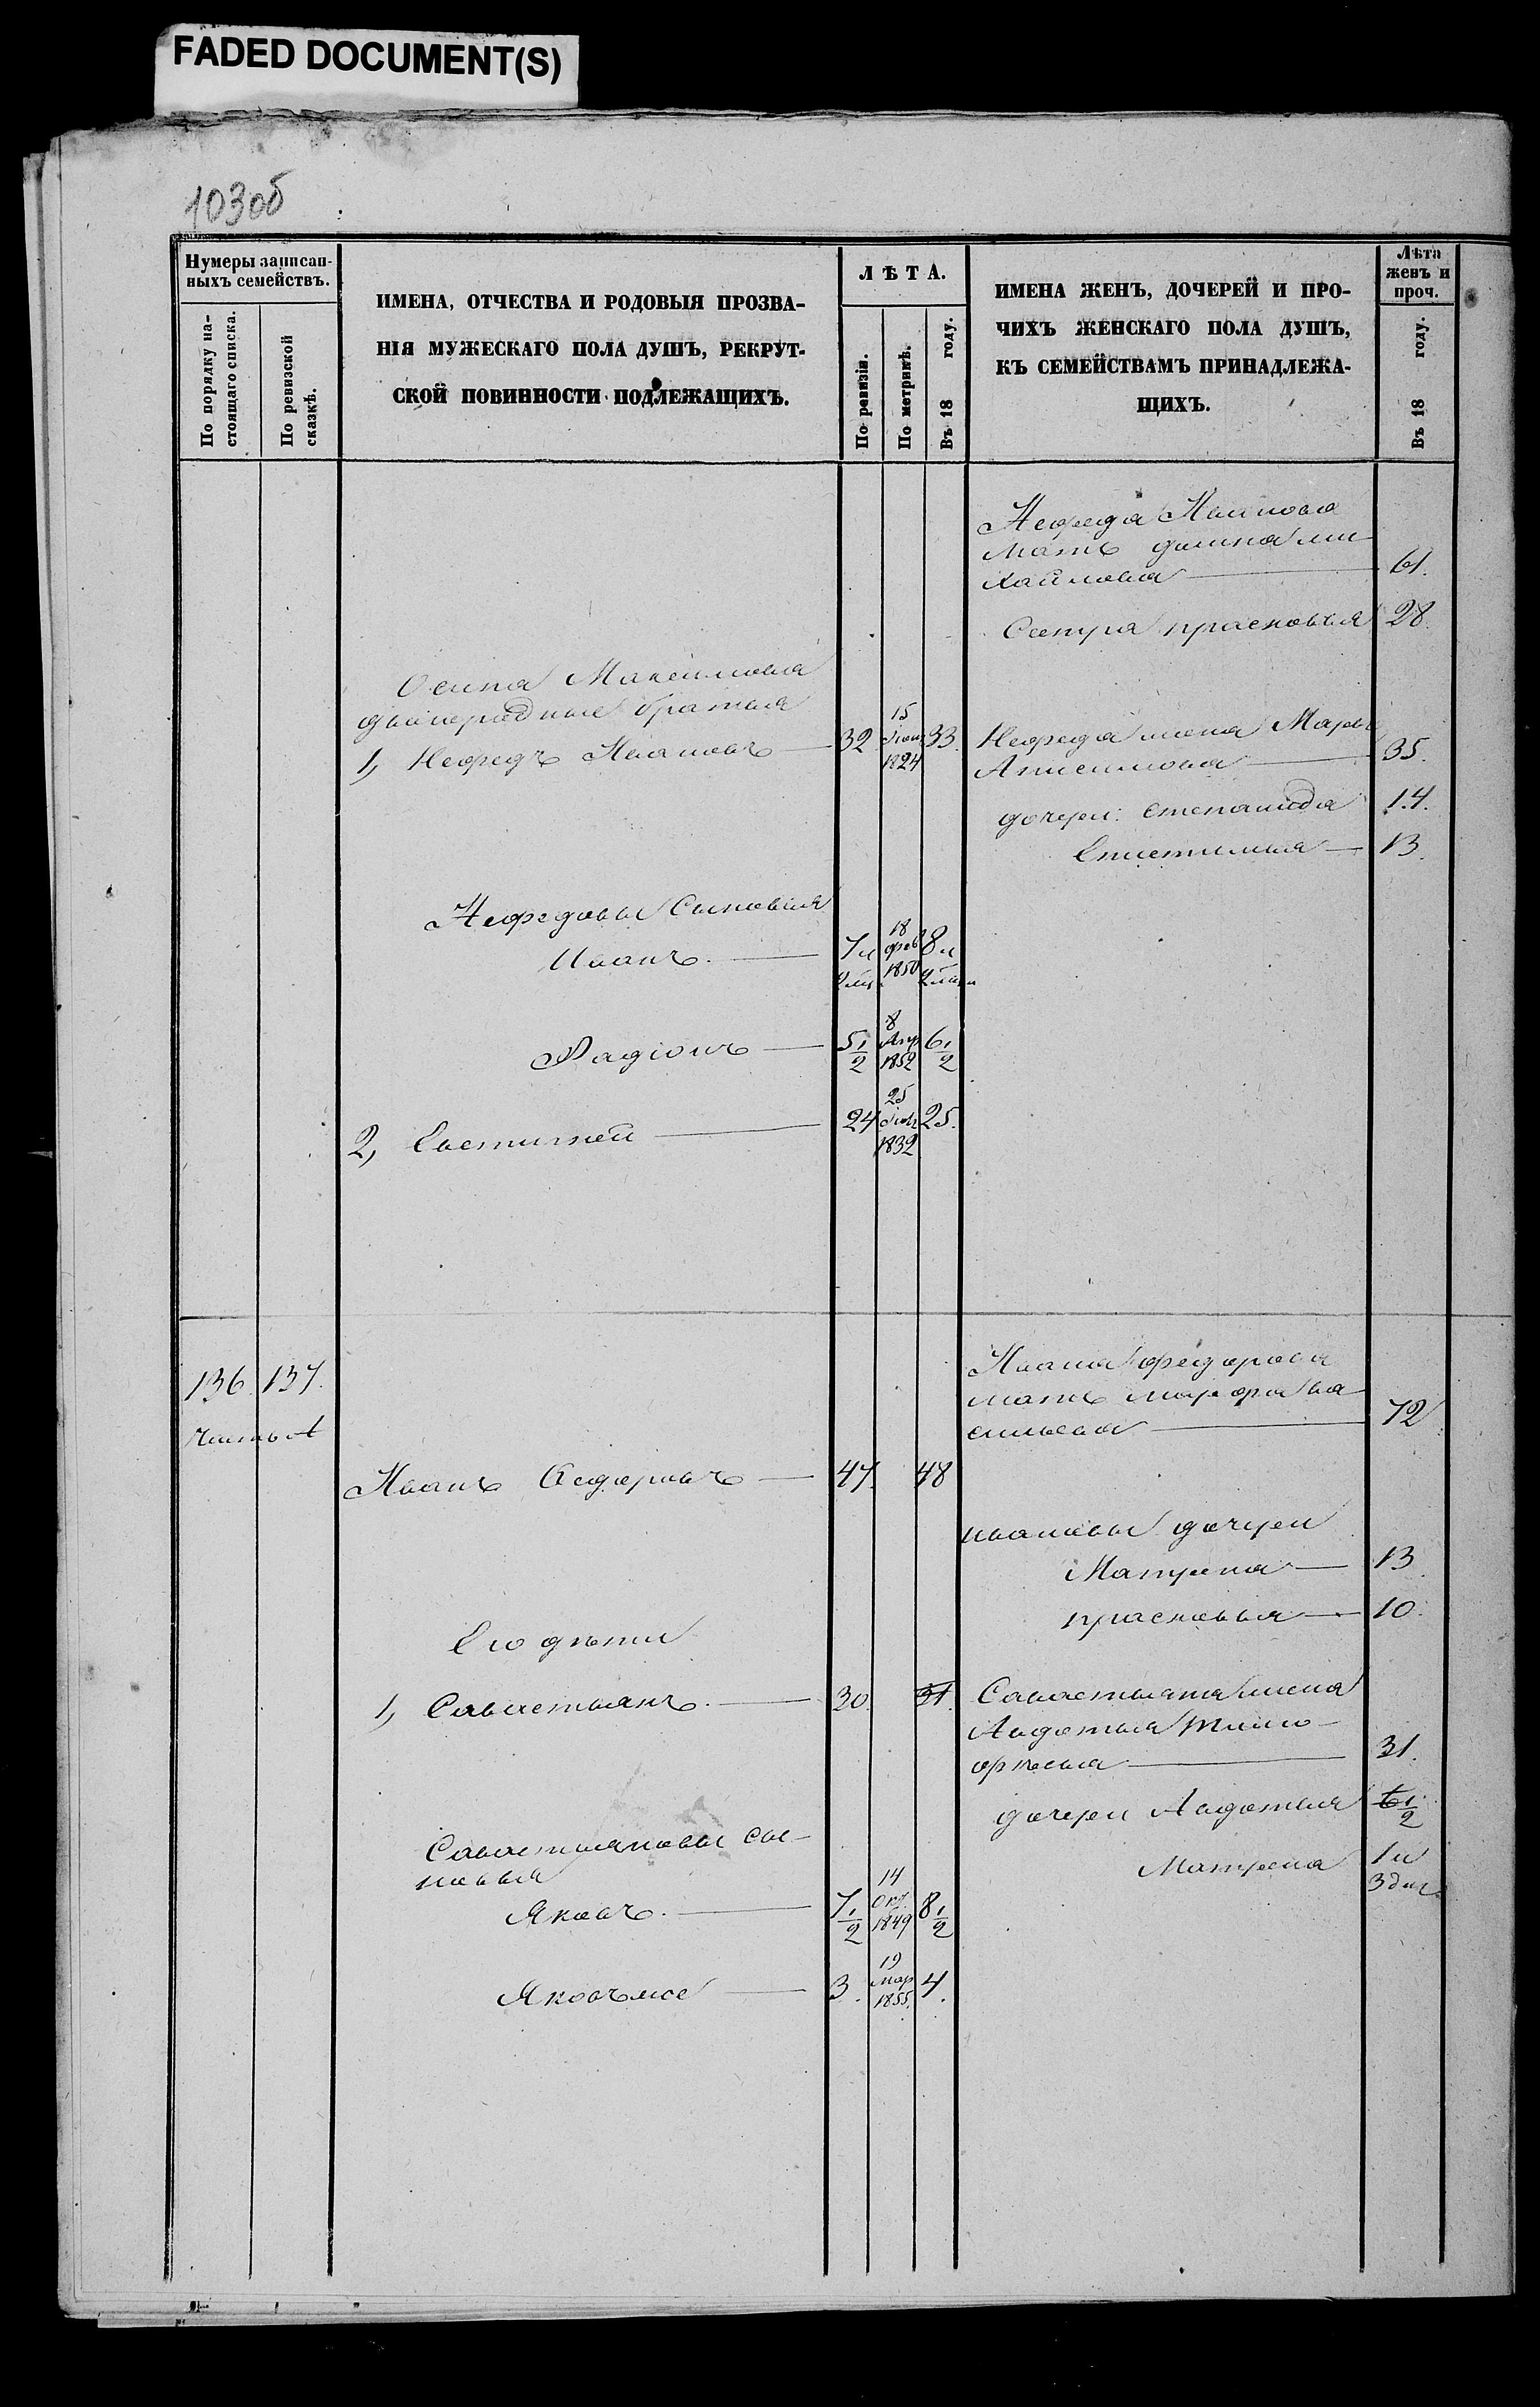 FADED DOCUMENT(S)
103об
Нумеры записан-
ныхъ семействъ.
По порядку на-
стоящаго списка.
По ревизской
сказкѣ.
ИМЕНА, ОТЧЕСТВА И РОДОВЫЯ ПРОЗВА-
НІЯ МУЖЕСКАГО ПОЛА ДУШЪ, РЕКРУТ-
СКОЙ ПОВИННОСТИ ПОДЛЕЖАЩИХЪ.
ЛѢТА.
По ревизіи.
По метрикѣ.
Въ 18 году.
ИМЕНА ЖЕНЪ, ДОЧЕРЕЙ И ПРО-
ЧИХЪ ЖЕНСКАГО ПОЛА ДУШЪ,
КЪ СЕМЕЙСТВАМЪ ПРИНАДЛЕЖА-
ЩИХЪ.
Лѣта
женъ и
проч.
Въ 18 году.
Нефеда Иванова
мать домна ми-
хайлова 61.
Сестра прасковья 28.
Осипа Максимова
двоюродные братья
1, Нефедъ Ивановъ 32 15 1824 33.
Нефеда жена Марья
Анисимова 35.
дочери: степанида 14.
Епистимия 13.
Нефедовы Сыновья
Иванъ. 7 и 2 мѣ 18 фев 1850 8 и 2 мѣ
Радіонъ 5 1/2 8 Апр 1852 6 1/2
2, Евстигней 24 25 1832 25.
136. 137.
часть А
Ивана федорова
мать марфа ва-
сильева 72
Иванъ Федоровъ 47. 48
ивановы дочери
Матрена 13.
прасковья 10.
Его дѣти
1, Савастьянъ. 30. 31.
Савастьяна жена
Авдотья тимо-
фѣева 31.
дочери Авдотья 6 1/2
Матрена 1 и 3 дни
Савастьяновы сы-
новья
Яковъ. 7 1/2 14 Окт 1849 8 1/2
Яковъ же 3. 19 мар 1855. 4.